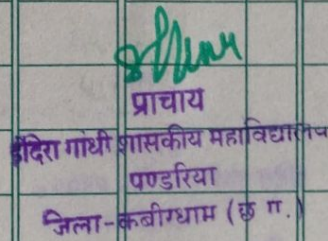 प्राचाय
इंदिरा गांधी शासकीय महाविद्यालय
पण्डरिया
जिला-कबीरधाम (छ ग.)